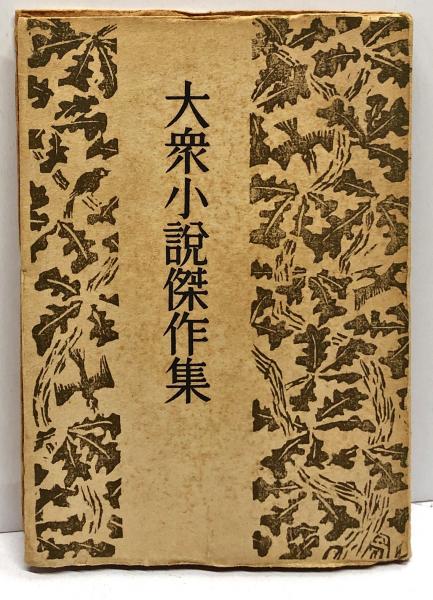 大衆小說傑作集